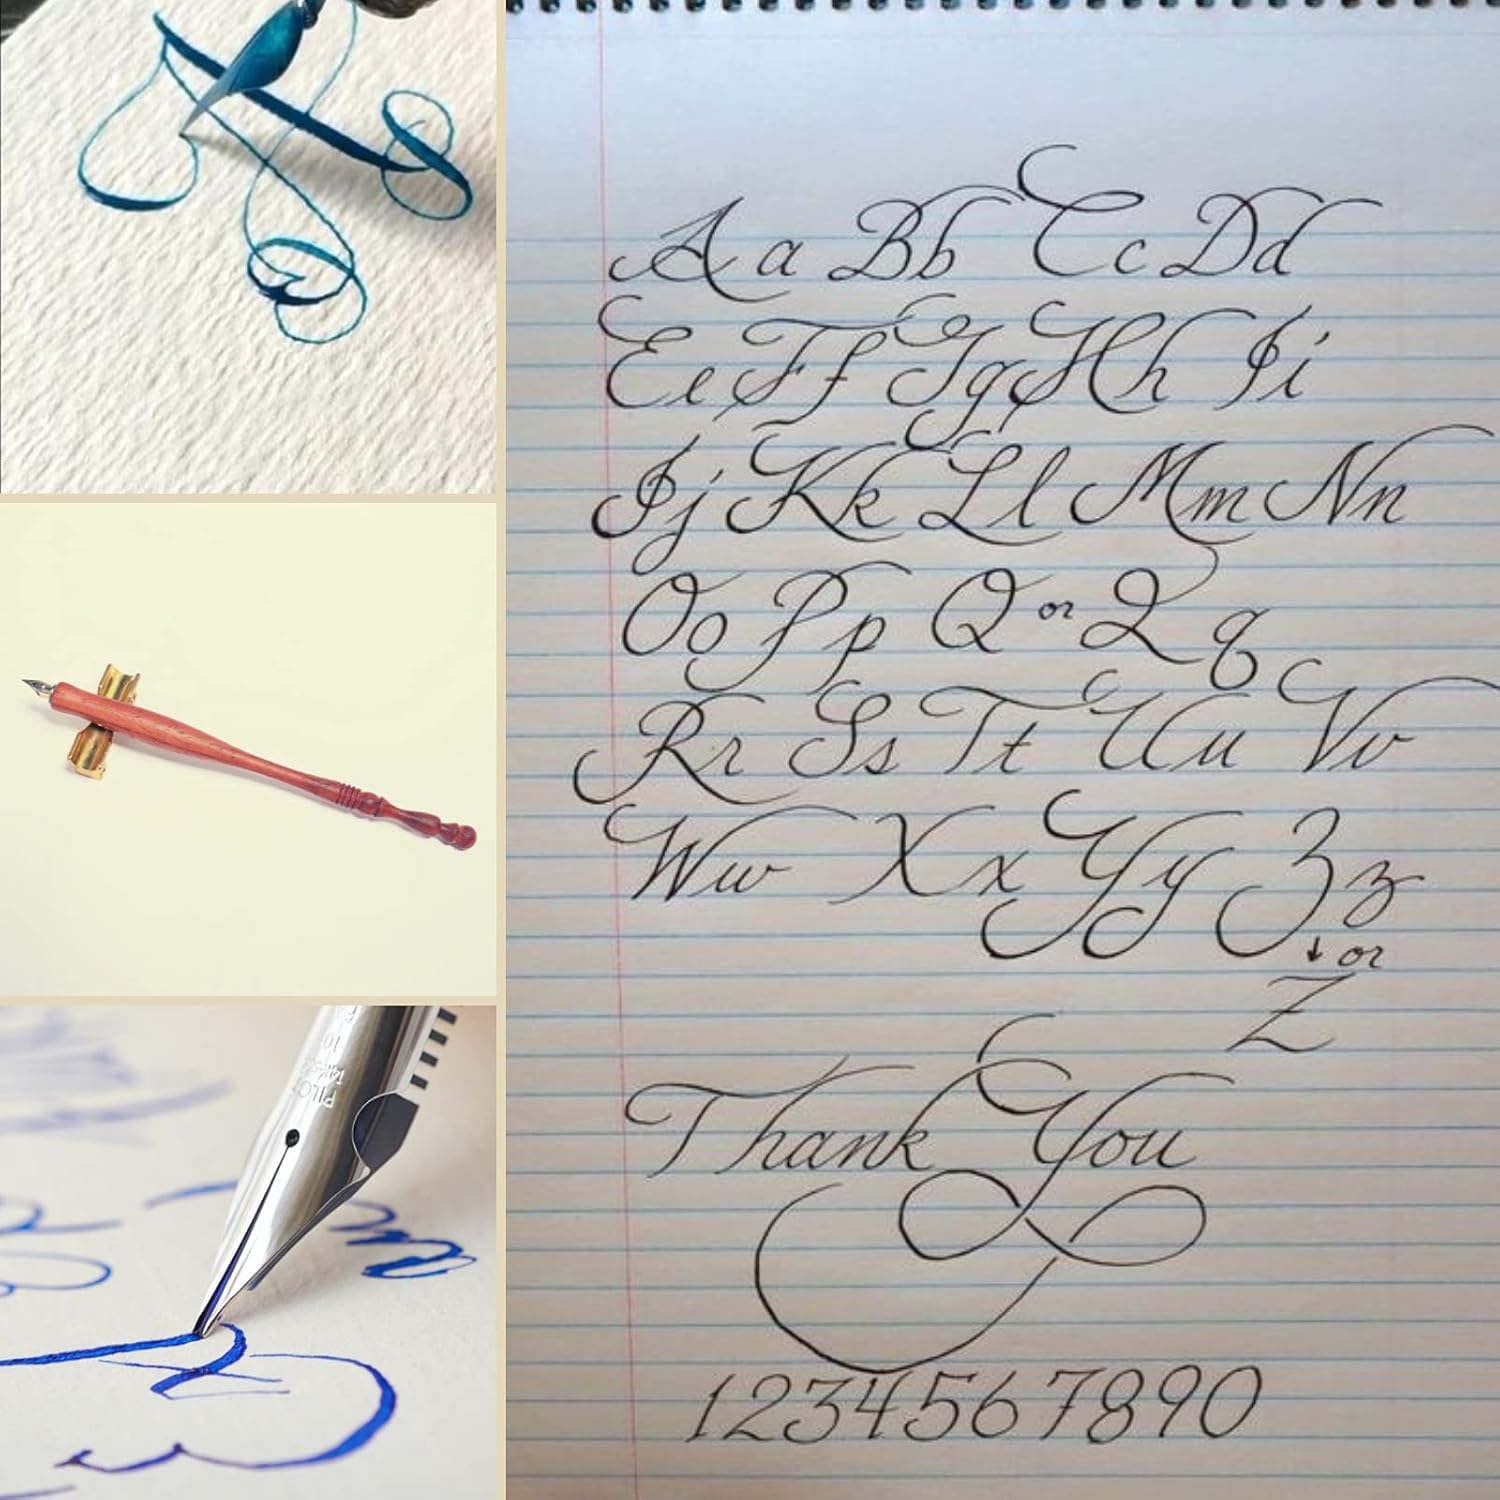 Aa Bb Cc Dd
Ee Ff Gg Hh Ii
Jj Kk Ll Mm Nn
Oo Pp Q or Q q
Rr Ss Tt Uu Vv
Ww Xx Yy Zz
↓ or
Z
Thank You
1234567890
PILOT